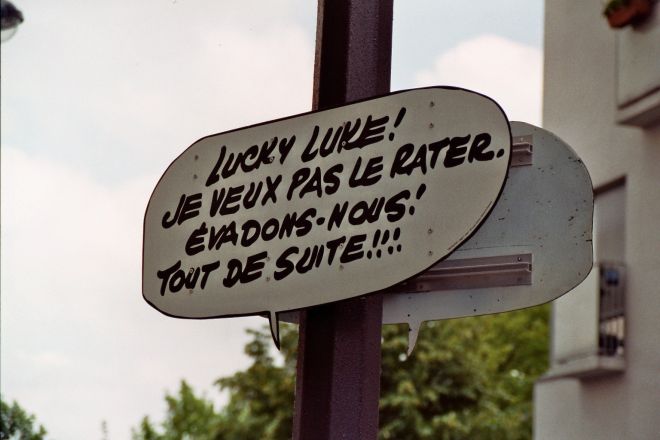 LUCKY LUKE!
JE VEUX PAS LE RATER.
ÉVADONS-NOUS!
TOUT DE SUITE!!!!